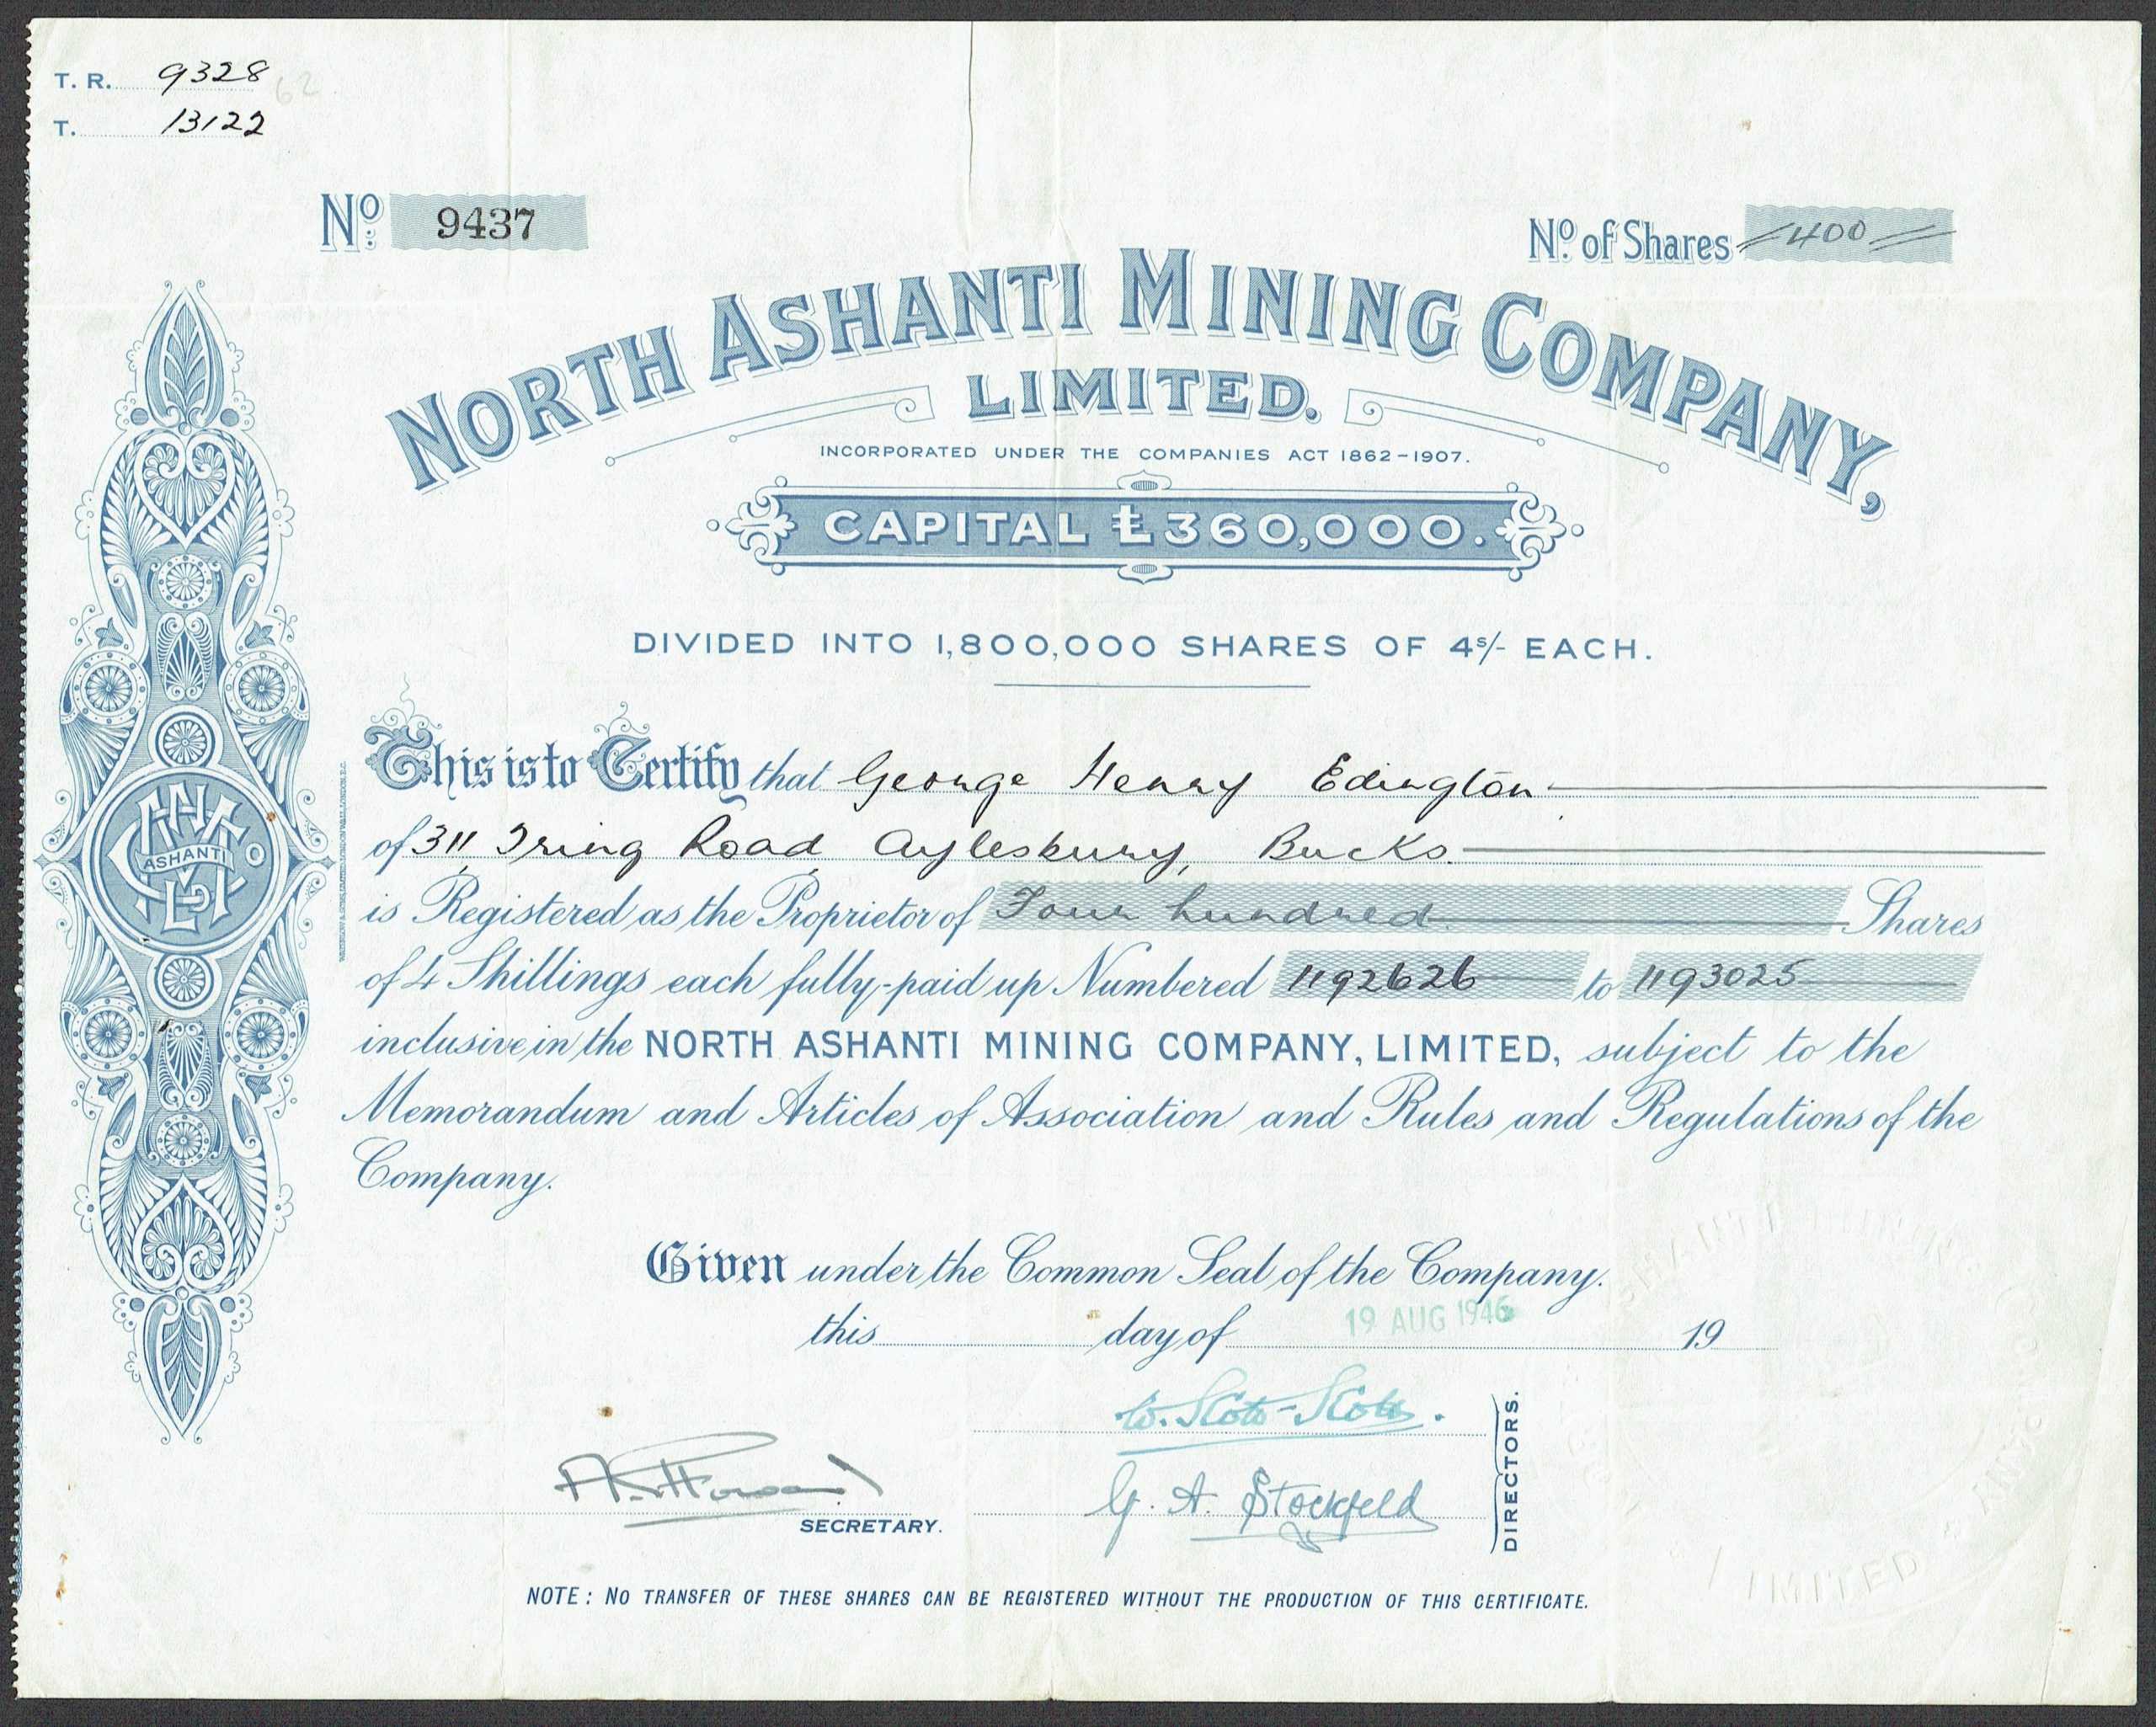 T. R. 9328
62
T. 13122
No. 9437
No. of Shares 400
NORTH ASHANTI MINING COMPANY,
LIMITED.
INCORPORATED UNDER THE COMPANIES ACT 1862-1907.
CAPITAL £360,000.
DIVIDED INTO 1,800,000 SHARES OF 4s/- EACH.
This is to Certify that George Henry Edington
of 311 Tring Road, Aylesbury, Bucks.
is Registered as the Proprietor of Four hundred Shares
of 4 Shillings each fully-paid up Numbered 1192626 to 1193025
inclusive in the NORTH ASHANTI MINING COMPANY, LIMITED, subject to the
Memorandum and Articles of Association and Rules and Regulations of the
Company.
Given under the Common Seal of the Company.
this day of 19 AUG 1946 19
G. A. Stockfeld
SECRETARY.
DIRECTORS.
NOTE: NO TRANSFER OF THESE SHARES CAN BE REGISTERED WITHOUT THE PRODUCTION OF THIS CERTIFICATE.
ASHANTI
LIMITED